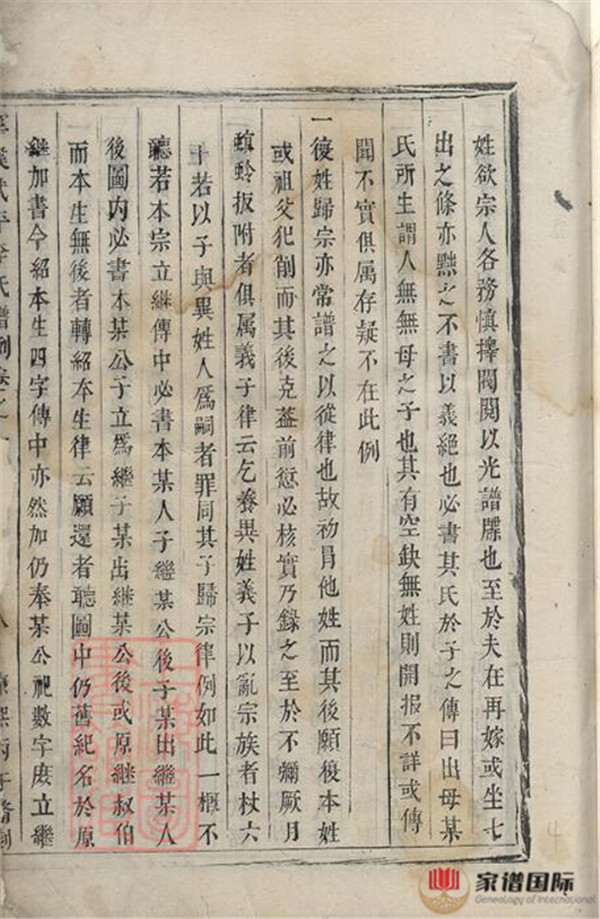 姓欲宗人各務慎擇閥閱以光譜牒也至於夫在再嫁或坐七
出之條亦黜之不書以義絕也必書其氏於子之傳曰出母某
氏所生謂人無無母之子也其有空缺無姓則開報不詳或傳
聞不實俱属存疑不在此例
一復姓歸宗亦常譜之以從律也故初冐他姓而其後願復本姓
或祖父犯削而其後克葢前愆必核實乃錄之至於不彌厥月
螟蛉扳附者俱属義子律云乞養異姓義子以亂宗族者杖六
十若以子與異姓人爲嗣者罪同其子歸宗律例如此一概不
聽若本宗立継傳中必書本某人子継某公後子某出継某人
後圖内必書本某公子立爲繼子某出継某公後或原継叔伯
而本生無後者轉紹本生律云願還者聽圖中仍舊紀名於原
繼加書今紹本生四字傳中亦然加仍奉某公祀數字庶立継
李氏譜例卷之
八
丙子
家谱国际
Genealogy of International